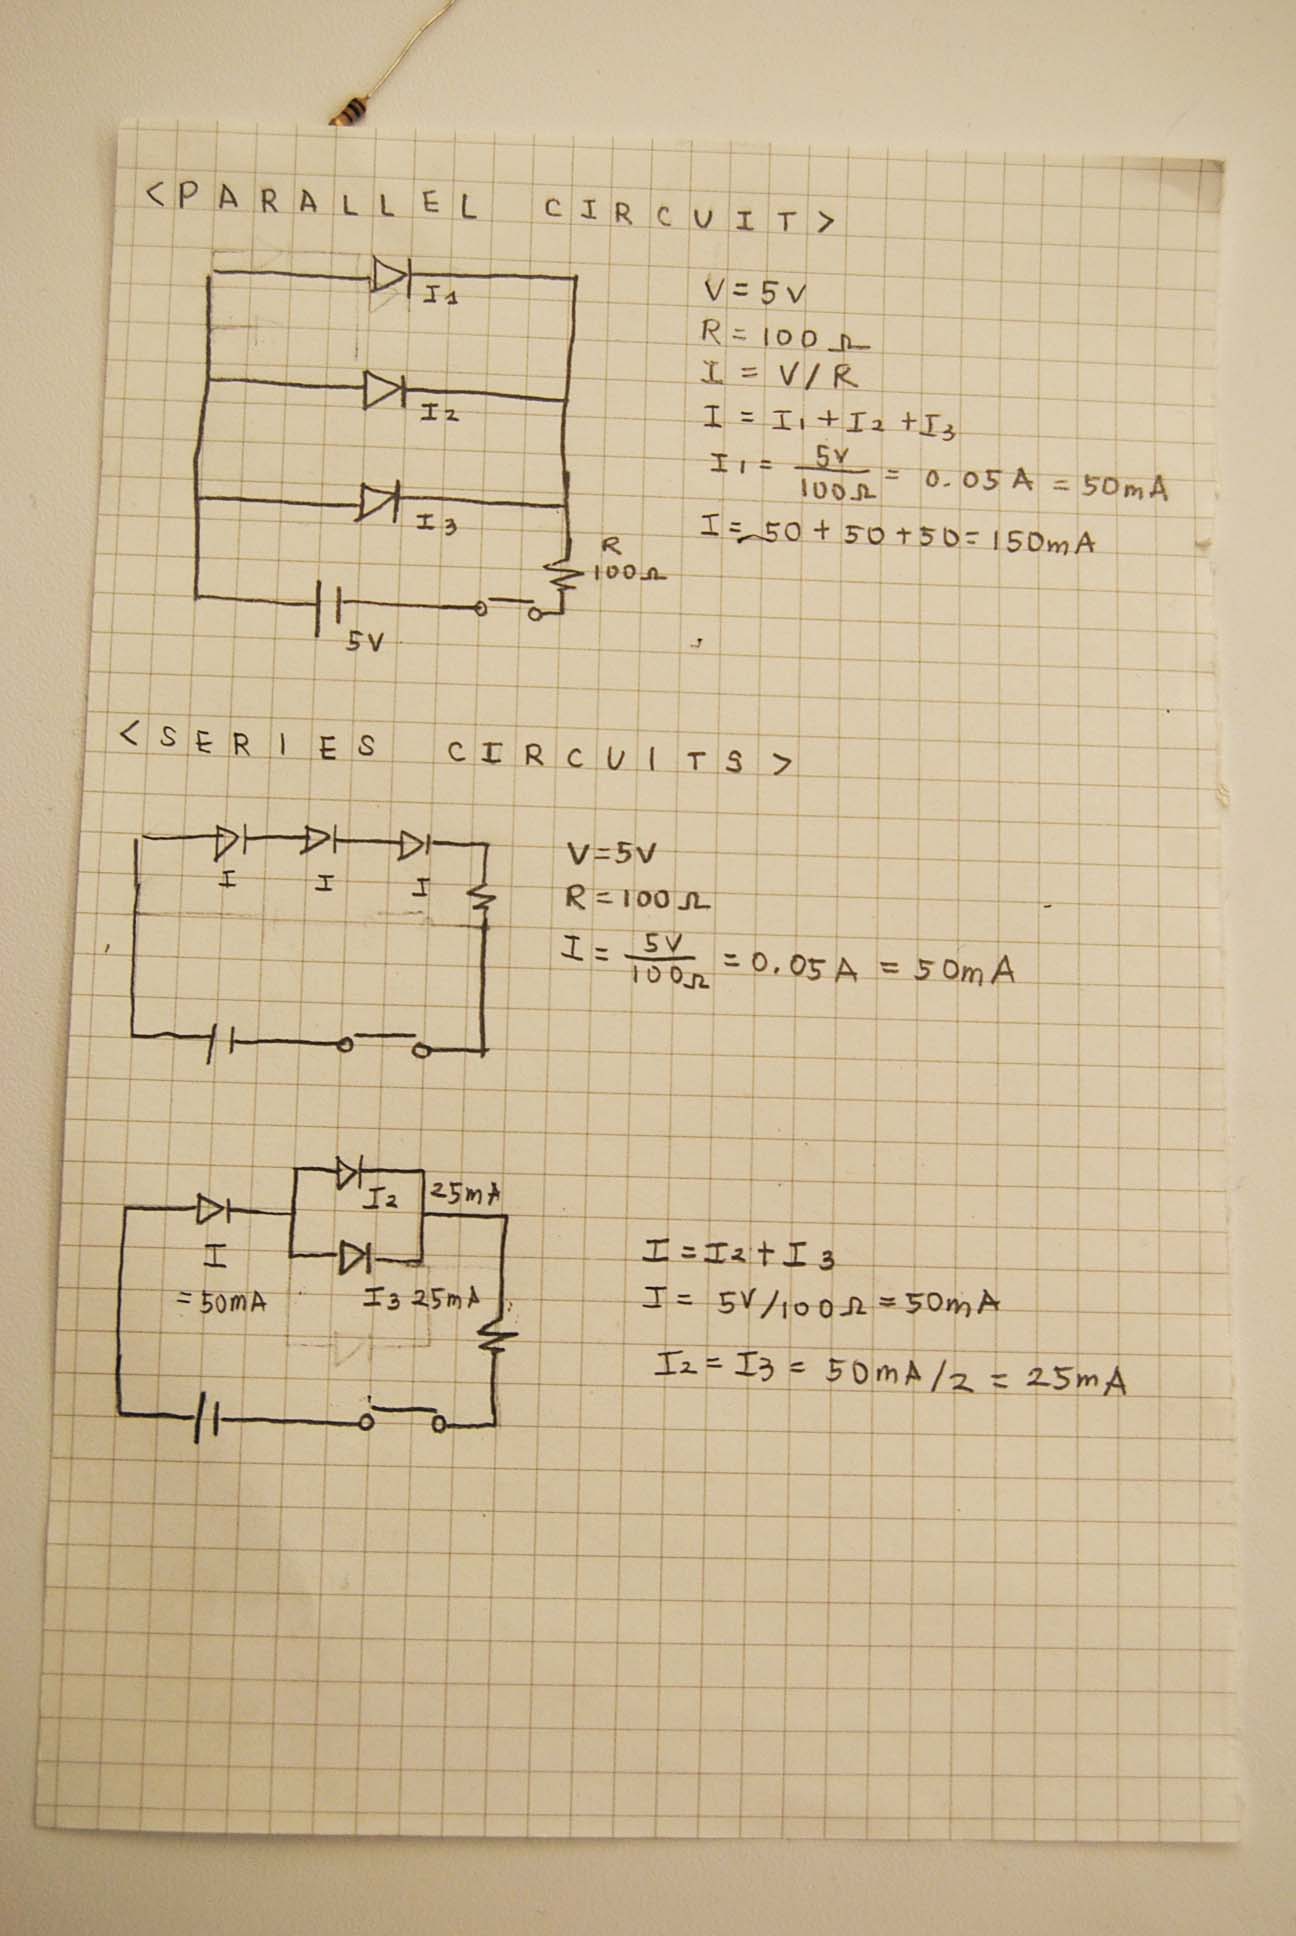 <PARALLEL CIRCUIT>
I1
I2
I3
R
100Ω
5V
V=5V
R=100Ω
I = V/R
I = I1+I2+I3
I1 = 5V/100Ω = 0.05A = 50mA
I = 50+50+50=150mA
<SERIES CIRCUITS>
I I I
V=5V
R=100Ω
I = 5V/100Ω = 0.05A = 50mA
I2 25mA
I
=50mA
I3 25mA
I = I2+I3
I = 5V/100Ω = 50mA
I2 = I3 = 50mA/2 = 25mA